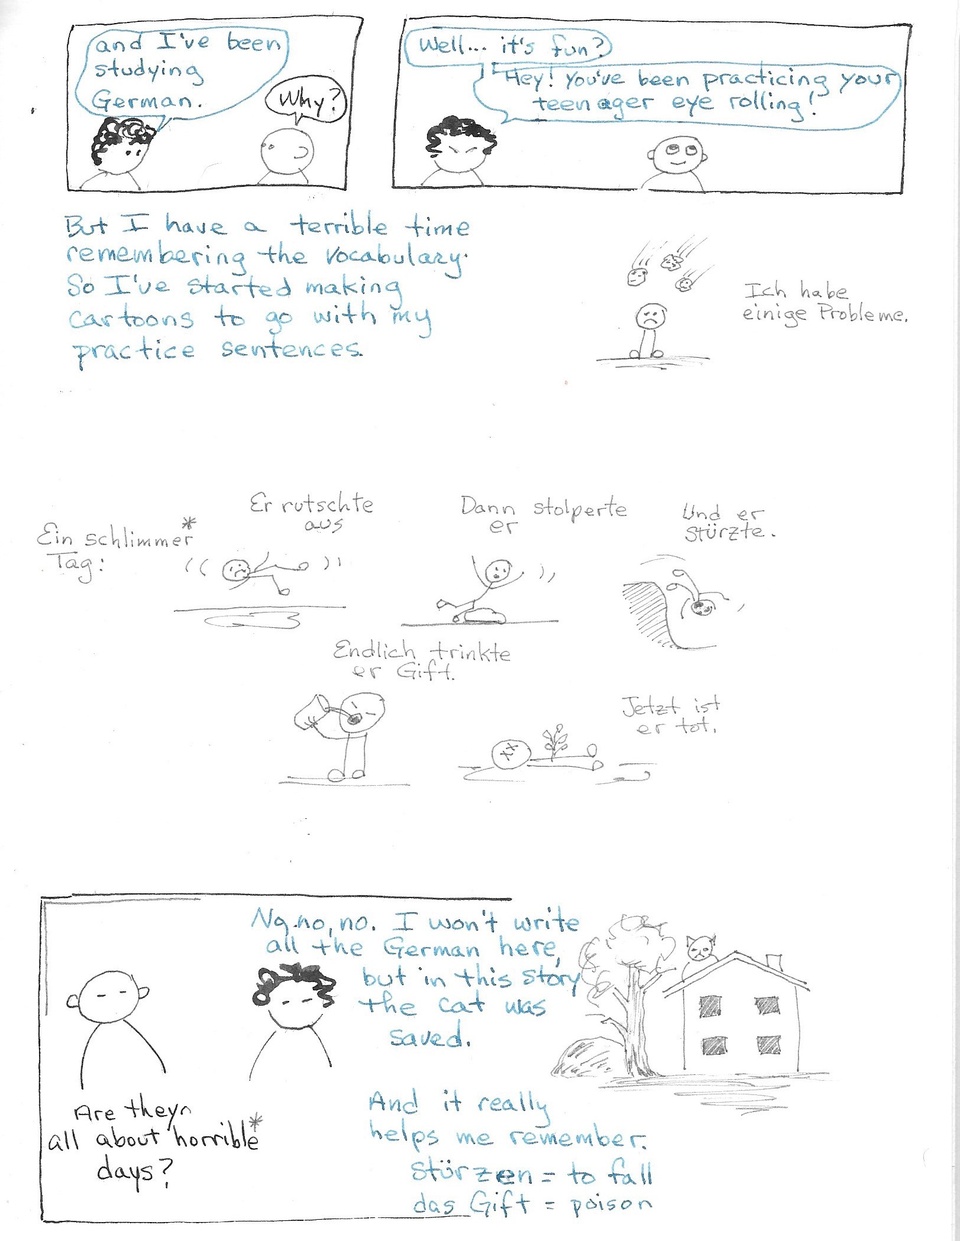 and I've been
studying
German.
Why?
Well... it's fun?
Hey! You've been practicing your
teenager eye rolling!
But I have a terrible time
remembering the vocabulary.
So I've started making
cartoons to go with my
practice sentences.
Ich habe
einige Probleme.
Ein schlimmer*
Tag:
Er rutschte
aus
Dann stolperte
er
Und er
stürzte.
Endlich trinkte
er Gift.
Jetzt ist
er tot.
No, no, no. I won't write
all the German here,
but in this story
the cat was
saved.
Are they
all about horrible*
days?
And it really
helps me remember.
Stürzen = to fall
das Gift = poison